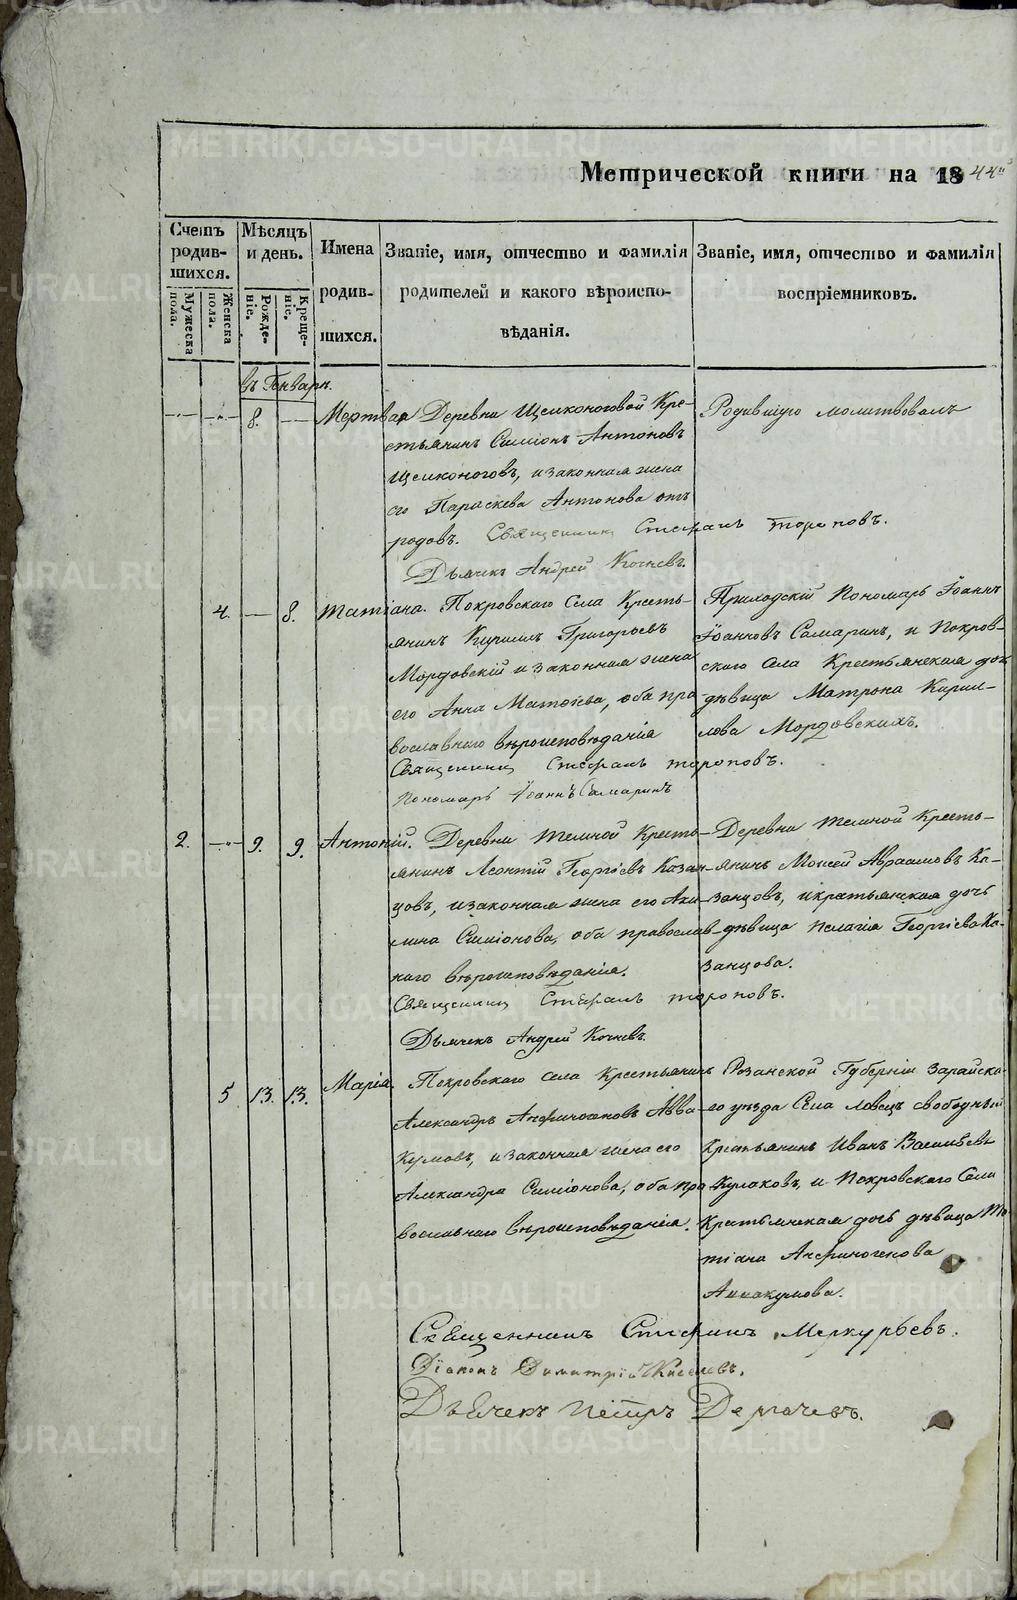 Метрической книги на 1844й
Счетъ родив-шихся.
Мужеска пола.
Женска пола.
Мѣсяцъ и день.
Рожде-ніе.
Креще-ніе.
Имена родив-шихся.
Званіе, имя, отчество и фамилія
родителей и какого вѣроиспо-
вѣданія.
Званіе, имя, отчество и фамилія
воспріемниковъ.
въ Генварѣ.
8. Мертвая Деревни Щелконоговой Кре-
стьянинъ Симіонъ Антоновъ
Щелконоговъ, и законная жена
его Параскева Антонова отъ
родовъ. Священникъ Стефанъ Тороповъ.
Дьячекъ Андрей Кочневъ.
Родившую молитвовалъ
4. 8. Татіана. Покровскаго Села Кресть-
янинъ Кириллъ Григорьевъ
Мордовскій и законная жена
его Анна Матѳіева, оба пра-
вославнаго вѣроисповѣданія
Священникъ Стефанъ Тороповъ.
Пономарь Іоаннъ Самаринъ
Приходскій Пономарь Іоаннъ
Іоанновъ Самаринъ, и Покров-
скаго Села Крестьянская доч
дѣвица Матрона Кирил-
лова Мордовскихъ.
2. 9. 9. Антоній. Деревни Темной Кресть-
янинъ Леонтій Георгіевъ Казан-
цовъ, и законная жена его Аки-
лина Симіонова, оба православ-
наго вѣроисповѣданія.
Священникъ Стефанъ Тороповъ.
Дьячекъ Андрей Кочневъ.
Деревни Темной Кресть-
янинъ Моисей Авраамовъ Ка-
занцовъ, и крестьянская дочь
дѣвица Пелагія Георгіева Ка-
занцова.
5 13. 13. Марія. Покровскаго села Крестьянинъ
Александръ Анфиногеновъ Авва-
кумовъ, и законная жена его
Александра Симіонова, оба пра-
вославнаго вѣроисповѣданія.
Розанской Губерніи Зарайска-
го уѣзда Села Ловецъ свободный
Крестьянинъ Иванъ Васильевъ
Кулаковъ, и Покровскаго Села
Крестьянская дочь дѣвица Та-
тіана Анфиногенова
Аввакумова.
Священникъ Стефанъ Меркурьевъ.
Діаконъ Димитрій Киселевъ.
Дьячекъ Петръ Дергачевъ.
METRIKI.GASO-URAL.RU